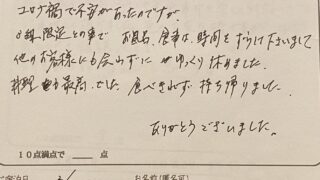 コロナ禍で不安があったのですが、
8組限定との事で お風呂、食事は、時間をずらけ下さいまして
他のお客様にも会わずに ゆっくり休めました。
料理も最高でした 食べきれず 持ち帰りました。
ありがとうございました。
10点満点で 点
お名前(匿名可)